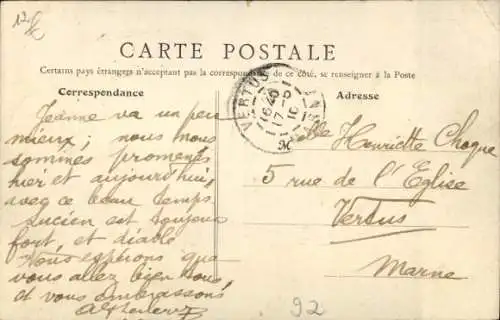 12
CARTE POSTALE
Certains pays étrangers n'acceptant pas la correspondance de ce côté, se renseigner à la Poste
Correspondance
Adresse
VERTUS
16 40
17 - 5
10
MARNE
Jeanne va un peu
mieux; nous nous
sommes promenés
hier et aujourd'hui,
avec ce beau temps.
Lucien est toujours
fort, et diable
Nous espérons que
vous allez bien tous
et vous embrassons
Mlle Henriette Choque
5 rue de l'Eglise
Vertus
Marne
92